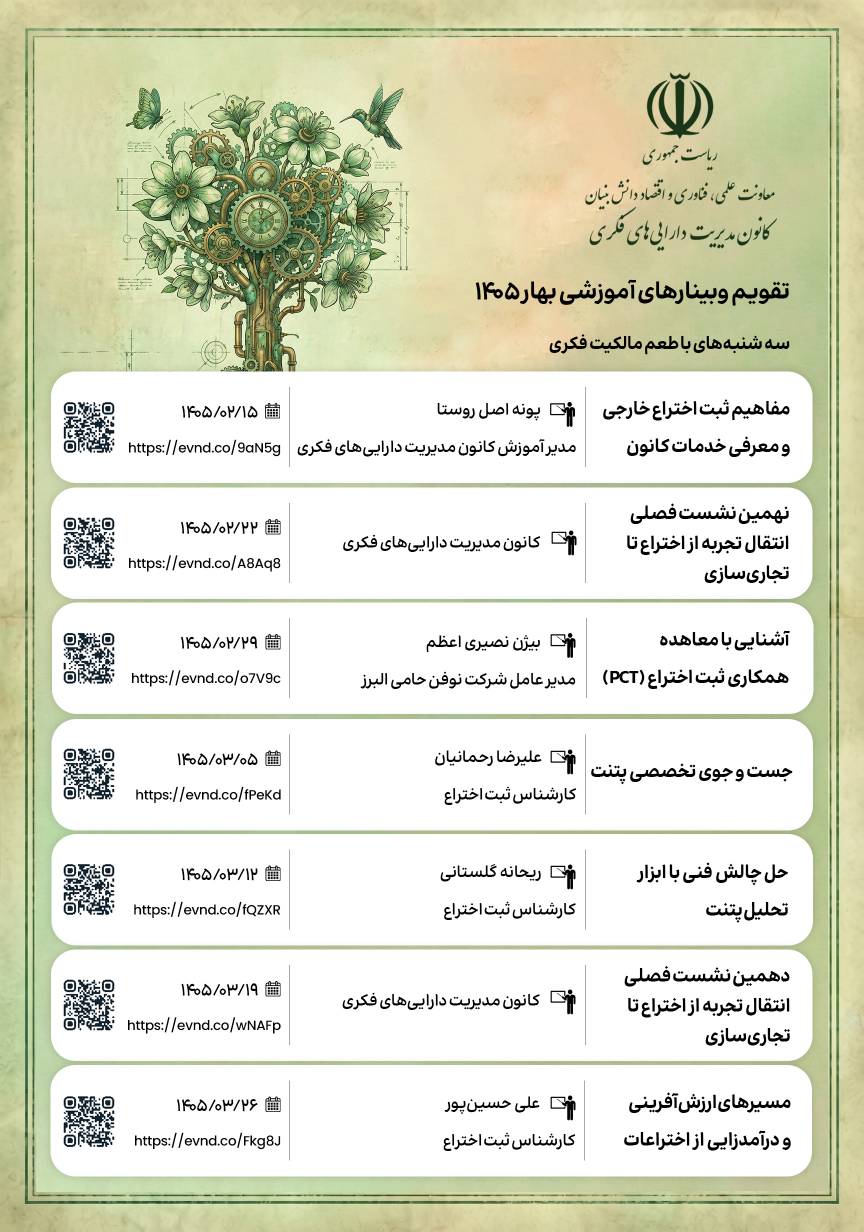 ریاست جمهوری
معاونت علمی، فناوری و اقتصاد دانش بنیان
کانون مدیریت دارایی‌های فکری
تقویم وبینارهای آموزشی بهار ۱۴۰۵
سه شنبه‌های با طعم مالکیت فکری
مفاهیم ثبت اختراع خارجی
و معرفی خدمات کانون
پونه اصل روستا
مدیر آموزش کانون مدیریت دارایی‌های فکری
۱۴۰۵/۰۲/۱۵
https://evnd.co/9aN5g
نهمین نشست فصلی
انتقال تجربه از اختراع تا
تجاری‌سازی
کانون مدیریت دارایی‌های فکری
۱۴۰۵/۰۲/۲۲
https://evnd.co/A8Aq8
آشنایی با معاهده
همکاری ثبت اختراع (PCT)
بیژن نصیری اعظم
مدیر عامل شرکت نوفن حامی البرز
۱۴۰۵/۰۲/۲۹
https://evnd.co/o7V9c
جست و جوی تخصصی پتنت
علیرضا رحمانیان
کارشناس ثبت اختراع
۱۴۰۵/۰۳/۰۵
https://evnd.co/fPeKd
حل چالش فنی با ابزار
تحلیل پتنت
ریحانه گلستانی
کارشناس ثبت اختراع
۱۴۰۵/۰۳/۱۲
https://evnd.co/fQZXR
دهمین نشست فصلی
انتقال تجربه از اختراع تا
تجاری‌سازی
کانون مدیریت دارایی‌های فکری
۱۴۰۵/۰۳/۱۹
https://evnd.co/wNAFp
مسیرهای ارزش‌آفرینی
و درآمدزایی از اختراعات
علی حسین‌پور
کارشناس ثبت اختراع
۱۴۰۵/۰۳/۲۶
https://evnd.co/Fkg8J